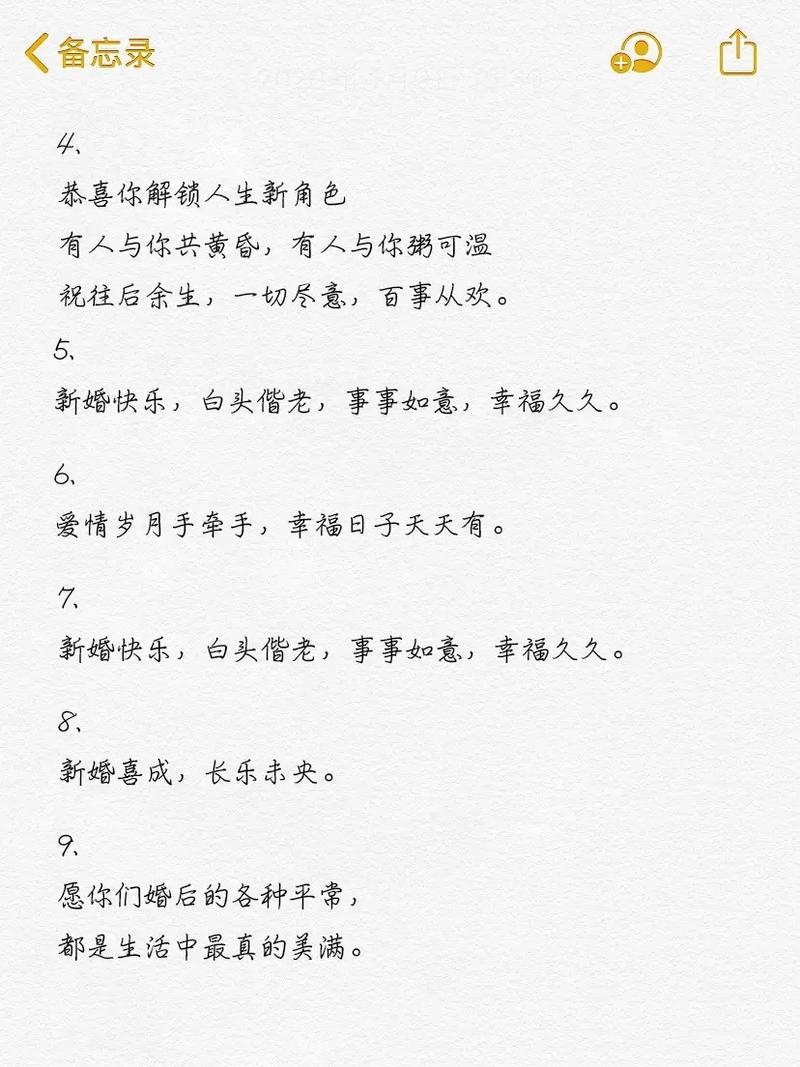 备忘录
4、
恭喜你解锁人生新角色
有人与你共黄昏，有人与你粥可温
祝往后余生，一切尽意，百事从欢。
5、
新婚快乐，白头偕老，事事如意，幸福久久。
6、
爱情岁月手牵手，幸福日子天天有。
7、
新婚快乐，白头偕老，事事如意，幸福久久。
8、
新婚喜成，长乐未央。
9、
愿你们婚后的各种平常，
都是生活中最真的美满。